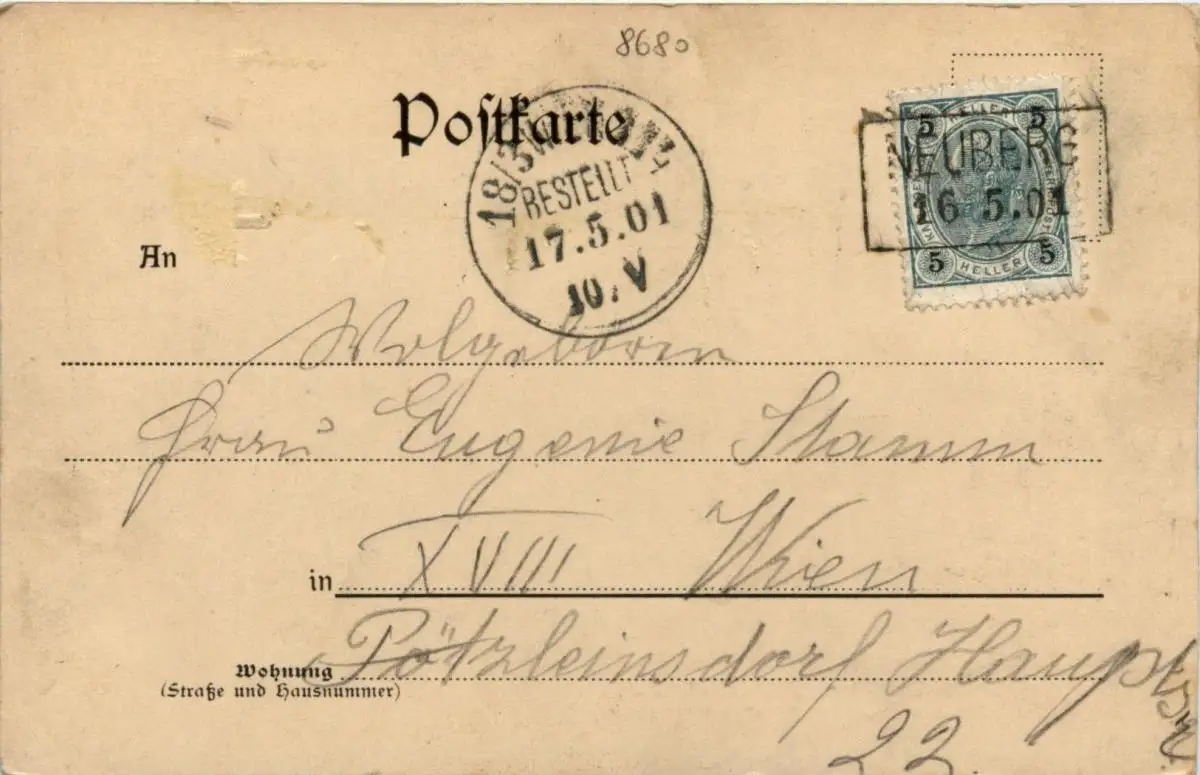 8680
Postkarte
18/3 WIEN
BESTELLT
17.5.01
10.V
5 HELLER 5
NEUBERG
16 5.01
5 HELLER 5
An
Wolgeboren
Frau Eugenie Stamm
in XVIII Wien
Wohnung Pötzleinsdorf Haupt
(Straße und Hausnummer)
22